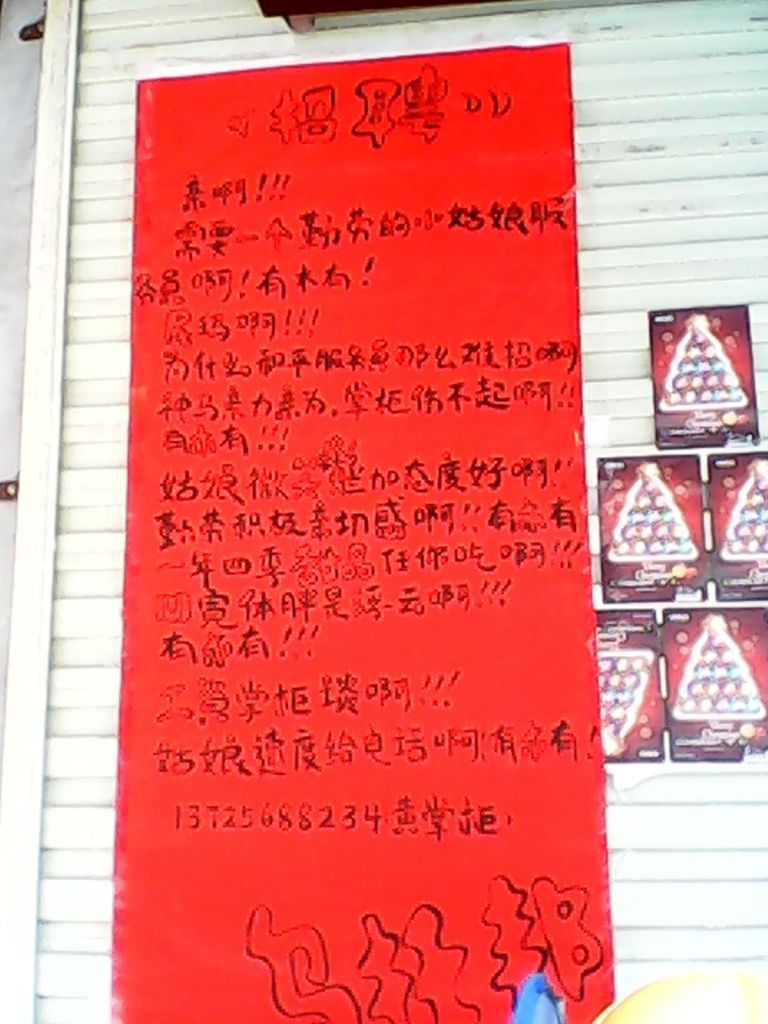 招聘
亲啊!!!
需要一个勤劳的小姑娘服
务员啊!有木有!
尼玛啊!!!
为什么和平服务员那么难招啊
神马亲力亲为,掌柜伤不起啊!!
有木有!!!
姑娘微笑 加态度好啊!!
勤劳积极亲切感啊!!有木有
一年四季 品任你吃啊!!!
吃完体胖是浮云啊!!!
有木有!!!
工资掌柜谈啊!!!
姑娘速度给电话啊!有木有!
13725688234黄掌柜